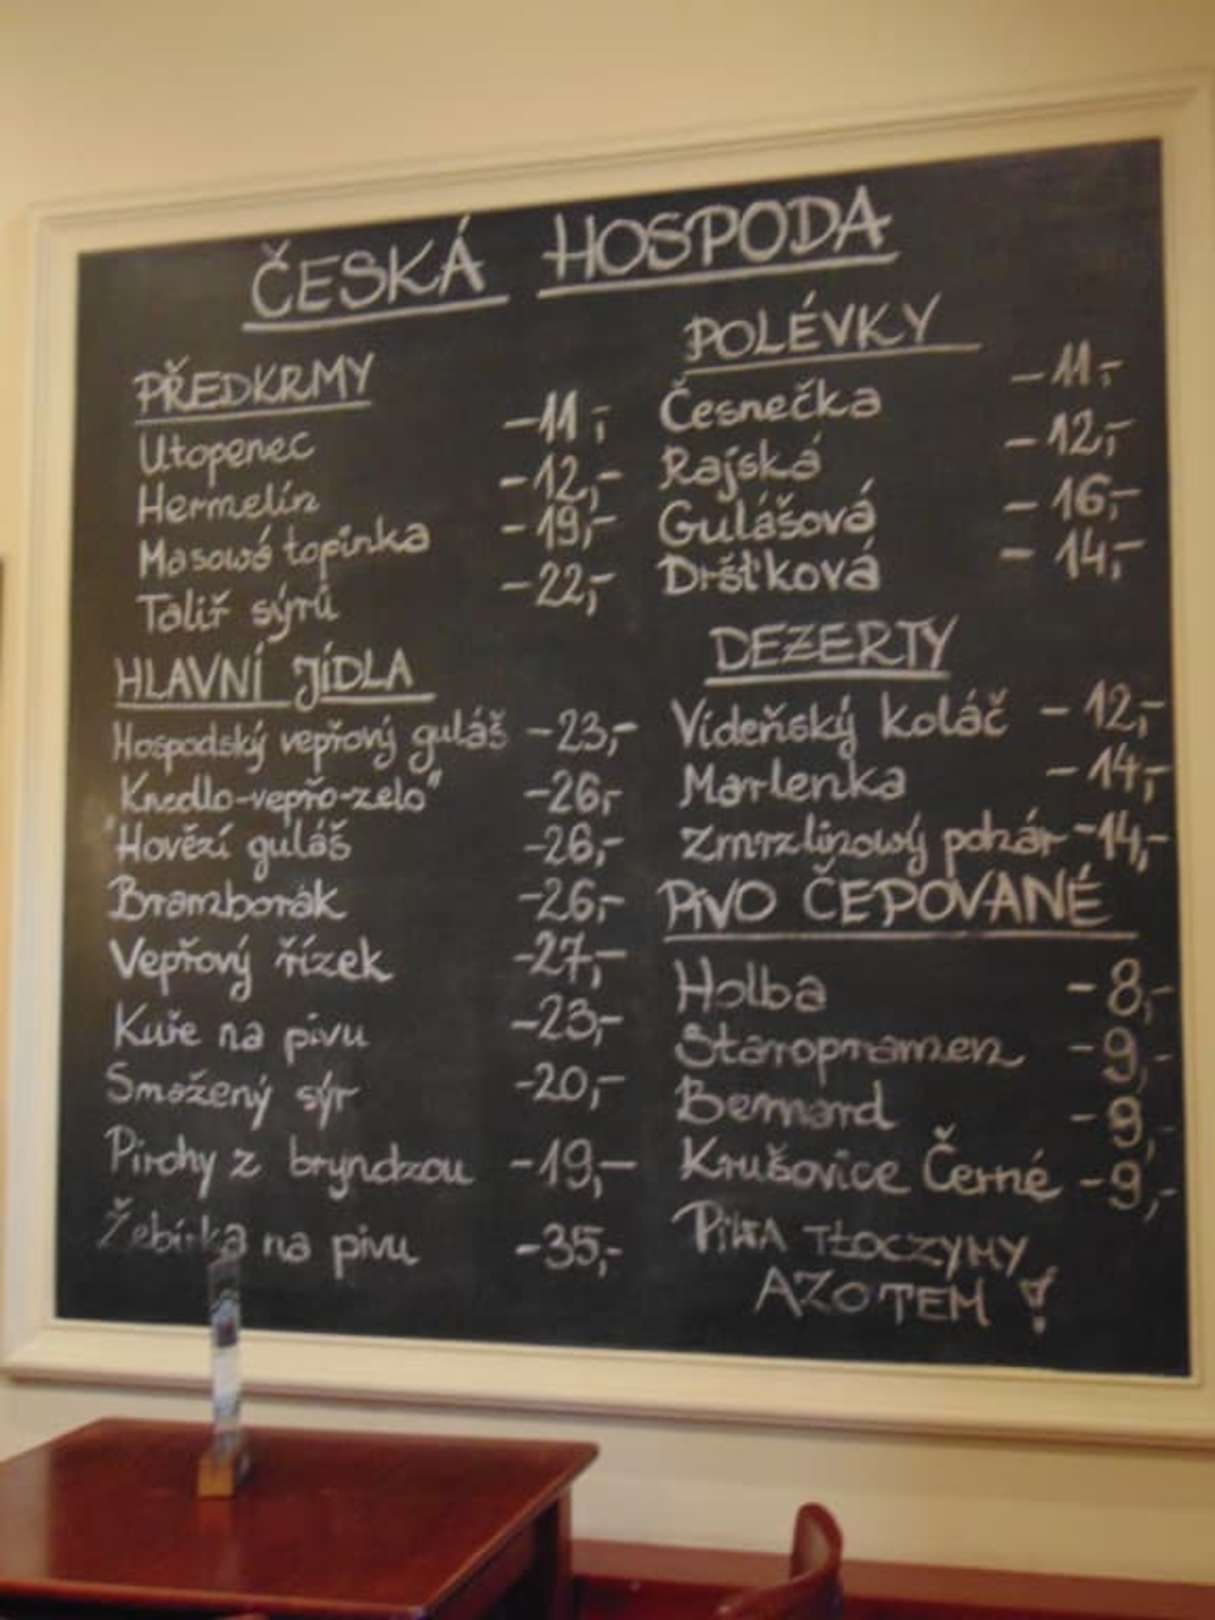 ČESKÁ HOSPODA
PŘEDKRMY
Utopenec -11,-
Hermelín -12,-
Masowá topinka -19,-
Talíř sýrů -22,-
HLAVNÍ JÍDLA
Hospodský vepřový guláš -23,-
"Knedlo-vepřo-zelo" -26,-
Hovězí guláš -26,-
Bramborák -26,-
Vepřový řízek -27,-
Kuře na pivu -23,-
Smažený sýr -20,-
Pirohy z bryndzou -19,-
Žebírka na pivu -35,-
POLÉVKY
Česnečka -11,-
Rajská -12,-
Gulášová -16,-
Dršťková - 14,-
DEZERTY
Vídeňský koláč - 12,-
Marlenka -14,-
Zmrzlinowý pohár -14,-
PIVO ČEPOVANÉ
Holba -8,-
Staropramen -9,-
Bernard -9,-
Krušovice Černé -9,-
PIWA TŁOCZYMY
AZOTEM !